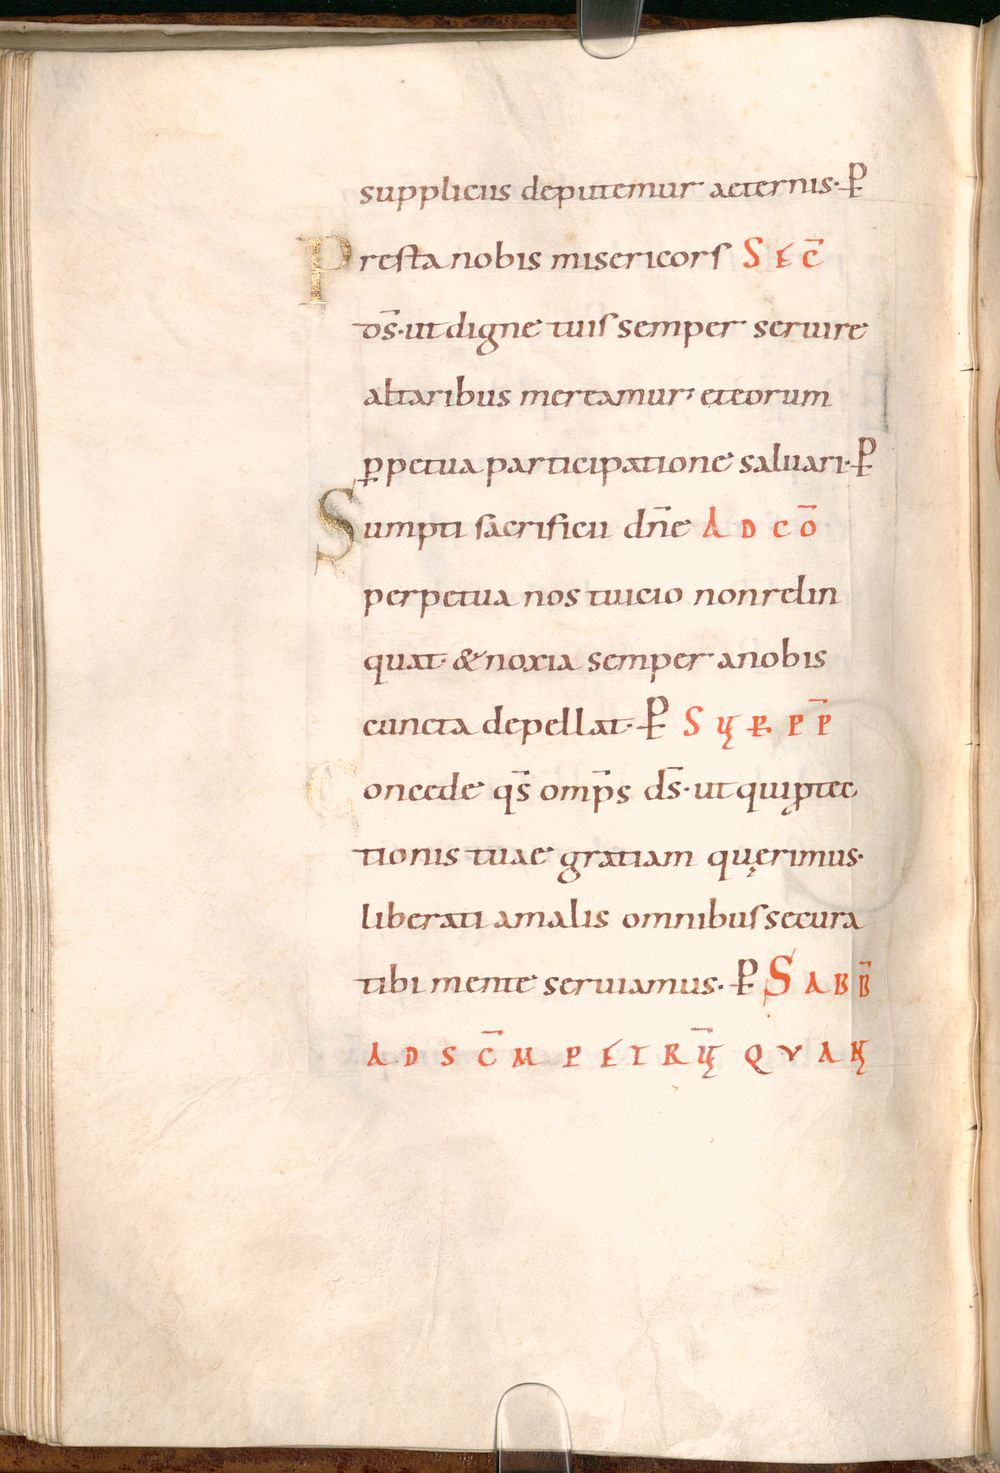 suppliciis deputemur aeternis· P̄
Presta nobis misericors SEC̄
d̄s· ut digne tuis semper seruire
altaribus mereamur; et eorum
ꝑpetua participatione saluari· P̄
Sumpti sacrificii dn̄e AD CŌ
perpetua nos tuicio non relin
quat· & noxia semper a nobis
cuncta depellat· P̄ SUP̲ PP̄
Concede qs̄ omp̄s ds̄· ut qui ꝓtec
tionis tuae gratiam quęrimus·
liberati a malis omnibus secura
tibi mente seruiamus· P̄ SABB̄
AD SC̄M PETRŪ QUAN